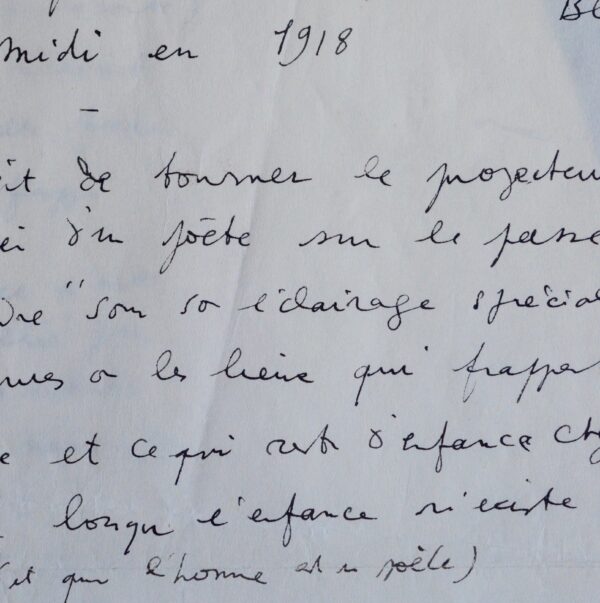 BE
midi en 1918
it de tourner le projecteur
ei d'un poète sur le passé
dre "son so l'éclairage spécial
mes o les lieux qui frappe
e et ce qui reste d'enfance che
lorsqu l'enfance n'existe
(et que l'homme est un poète)